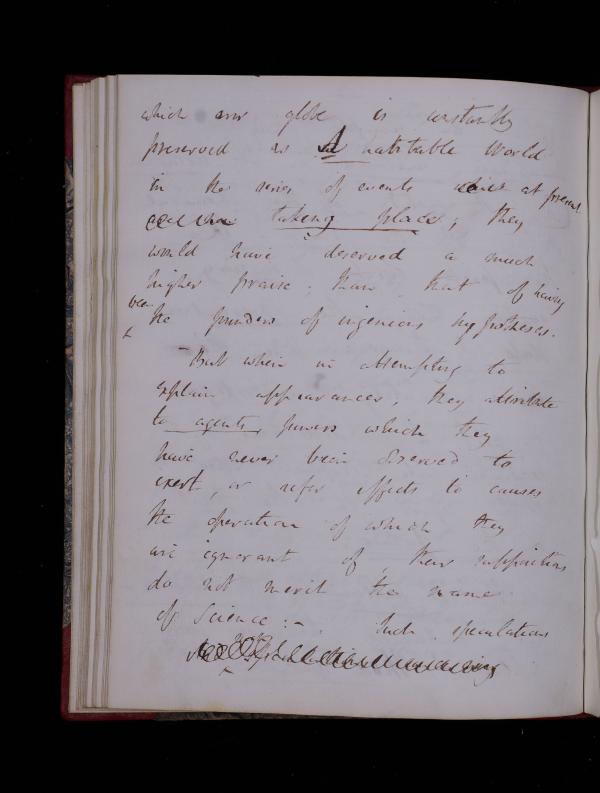 which our globe is constantly
preserved as A habitable World
in the series of events at present
taking place; they
would have deserved a much
higher praise; than that of having
been the founders of ingenious hypotheses.
But when in attempting to
explain appearances, they attribute
to agents, powers which they
have never been observed to
exert, or refer effects to causes
the operation of which they
are ignorant of, their suppositions
do not merit the name
of Science:- Such speculations